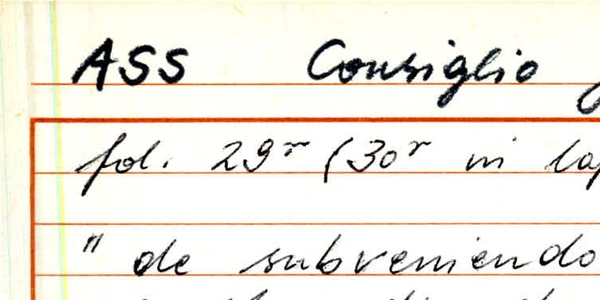 ASS Consiglio
fol. 29r (30r in
" de subveniendo